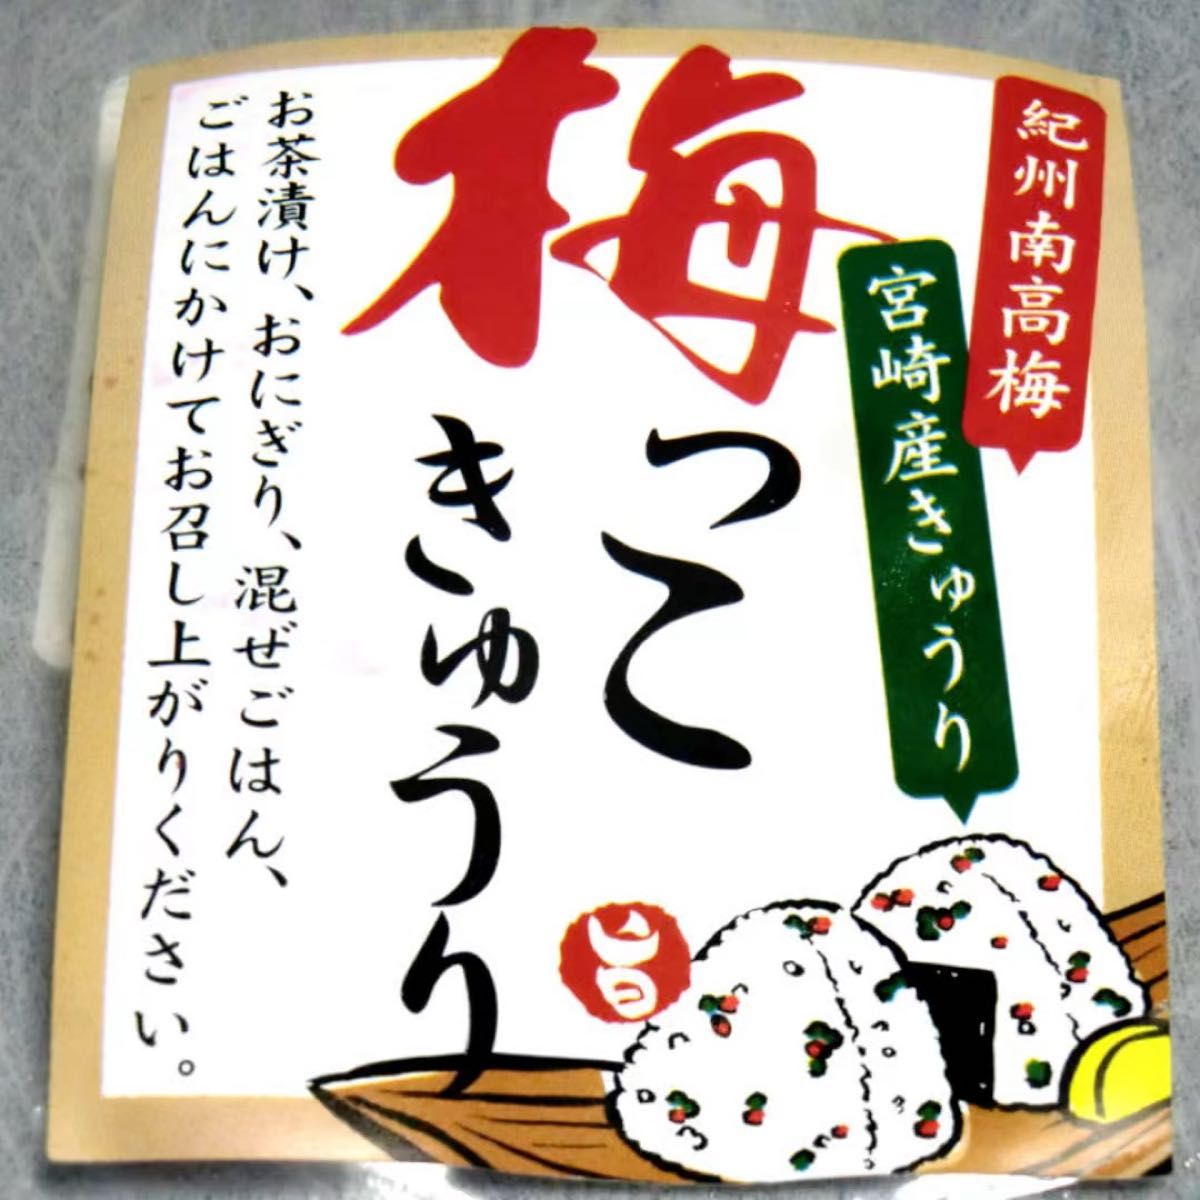 紀州南高梅
宮崎産きゅうり
梅っこ
きゅうり
旨
お茶漬け、おにぎり、混ぜごはん、
ごはんにかけてお召し上がりください。